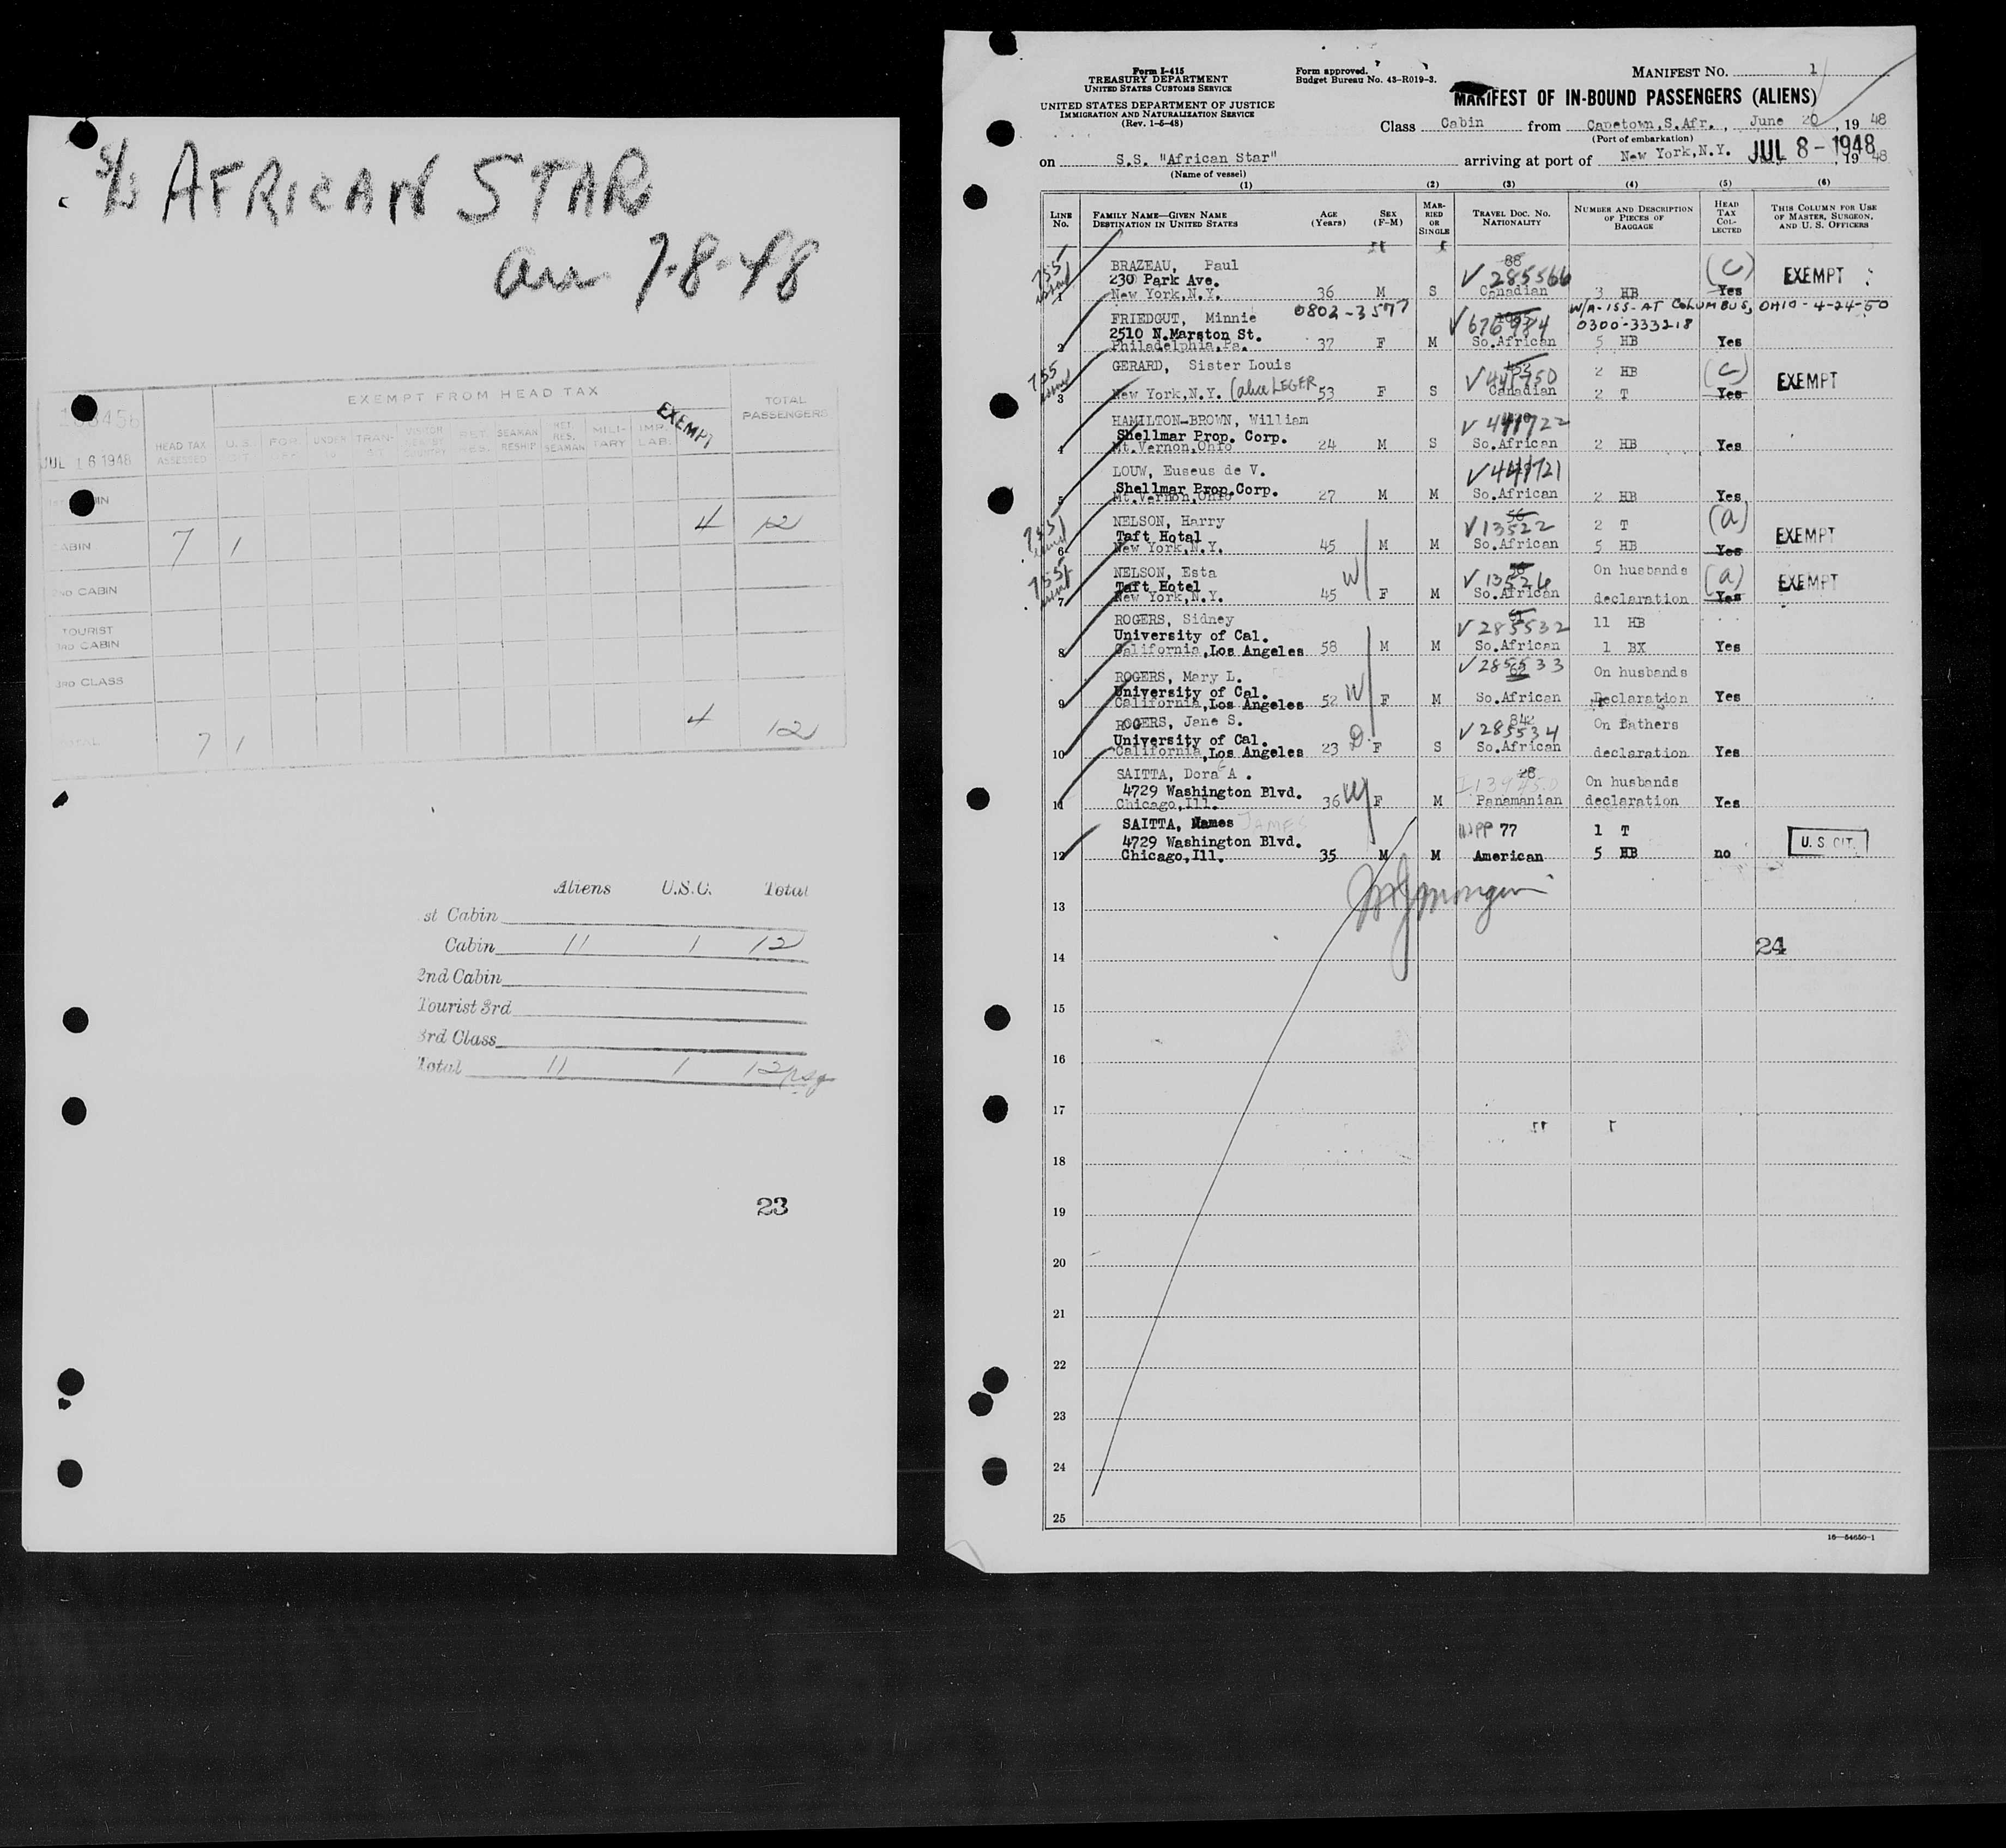 S/S AFRICAN STAR
arr 7-8-48
EXEMPT FROM HEAD TAX
TOTAL PASSENGERS
JUL 16 1948
HEAD TAX ASSESSED
U.S.
FOR.
UNDER
TRAN-
SEAMAN RESHIP
RET. RES. SEAMAN
MILI-TARY
IMP. LAB.
EXEMPT
CABIN 7 1 4 12
2ND CABIN
TOURIST
3RD CABIN
3RD CLASS
TOTAL 7 1 4 12
Aliens U.S.C. Total
st Cabin
Cabin 11 1 12
2nd Cabin
Tourist 3rd
3rd Class
Total 11 1 12 psg
23
Form I-415
TREASURY DEPARTMENT
UNITED STATES CUSTOMS SERVICE
UNITED STATES DEPARTMENT OF JUSTICE
IMMIGRATION AND NATURALIZATION SERVICE
(Rev. 1-5-48)
Form approved.
Budget Bureau No. 43-R019-3.
MANIFEST NO. 1
MANIFEST OF IN-BOUND PASSENGERS (ALIENS)
Class Cabin from Capetown,S.Afr., June 20, 19 48
(Port of embarkation)
on S.S. "African Star" arriving at port of New York,N.Y. JUL 8-1948, 19 48
(Name of vessel)
(1) (2) (3) (4) (5) (6)
LINE No.
FAMILY NAME—GIVEN NAME
DESTINATION IN UNITED STATES
AGE (Years)
SEX (F-M)
MAR-RIED OR SINGLE
TRAVEL DOC. NO. NATIONALITY
NUMBER AND DESCRIPTION OF PIECES OF BAGGAGE
HEAD TAX COL-LECTED
THIS COLUMN FOR USE OF MASTER, SURGEON, AND U. S. OFFICERS
BRAZEAU, Paul 88 (C)
230 Park Ave. V 285566 EXEMPT
1 New York,N.Y. 36 M S Canadian 3 HB Yes
0802-3577 W/A-ISS-AT COLUMBUS, OHIO-4-24-50
FRIEDGUT, Minnie 0300-333218
2510 N.Marston St. V 676984
2 Philadelphia,Pa. 37 F M So.African 5 HB Yes
GERARD, Sister Louis 2 HB (C)
V 441750 EXEMPT
3 New York,N.Y. (alice LEGER 53 F S Canadian 2 T Yes
HAMILTON-BROWN, William V 441722
Shellmar Prop. Corp.
4 Mt.Vernon,Ohio 24 M S So.African 2 HB Yes
LOUW, Euseus de V. V 441721
Shellmar Prop.Corp.
5 Mt.Vernon,Ohio 27 M M So.African 2 HB Yes
NELSON, Harry 56 2 T (a)
Taft Hotal V 13522 EXEMPT
6 New York,N.Y. 45 M M So.African 5 HB Yes
NELSON, Esta On husbands (a)
Taft Hotel V 13526 EXEMPT
7 New York,N.Y. 45 W F M So.African declaration Yes
ROGERS, Sidney 11 HB
University of Cal. V 285532
8 California,Los Angeles 58 M M So.African 1 BX Yes
ROGERS, Mary L. V 285533 On husbands
University of Cal. 62
9 California,Los Angeles 52 W F M So.African Declaration Yes
ROGERS, Jane S. 842 On Fathers
University of Cal. V 285534
10 California,Los Angeles 23 D. F S So.African declaration Yes
SAITTA, Dora A. 28 On husbands
4729 Washington Blvd.
11 Chicago,Ill. 36 W F M Panamanian declaration Yes
SAITTA, Names JAMES
4729 Washington Blvd. 77 1 T U. S CIT.
12 Chicago,Ill. 35 M M American 5 HB no
13
14
24
15
16
17
18
19
20
21
22
23
24
25
16—54650-1